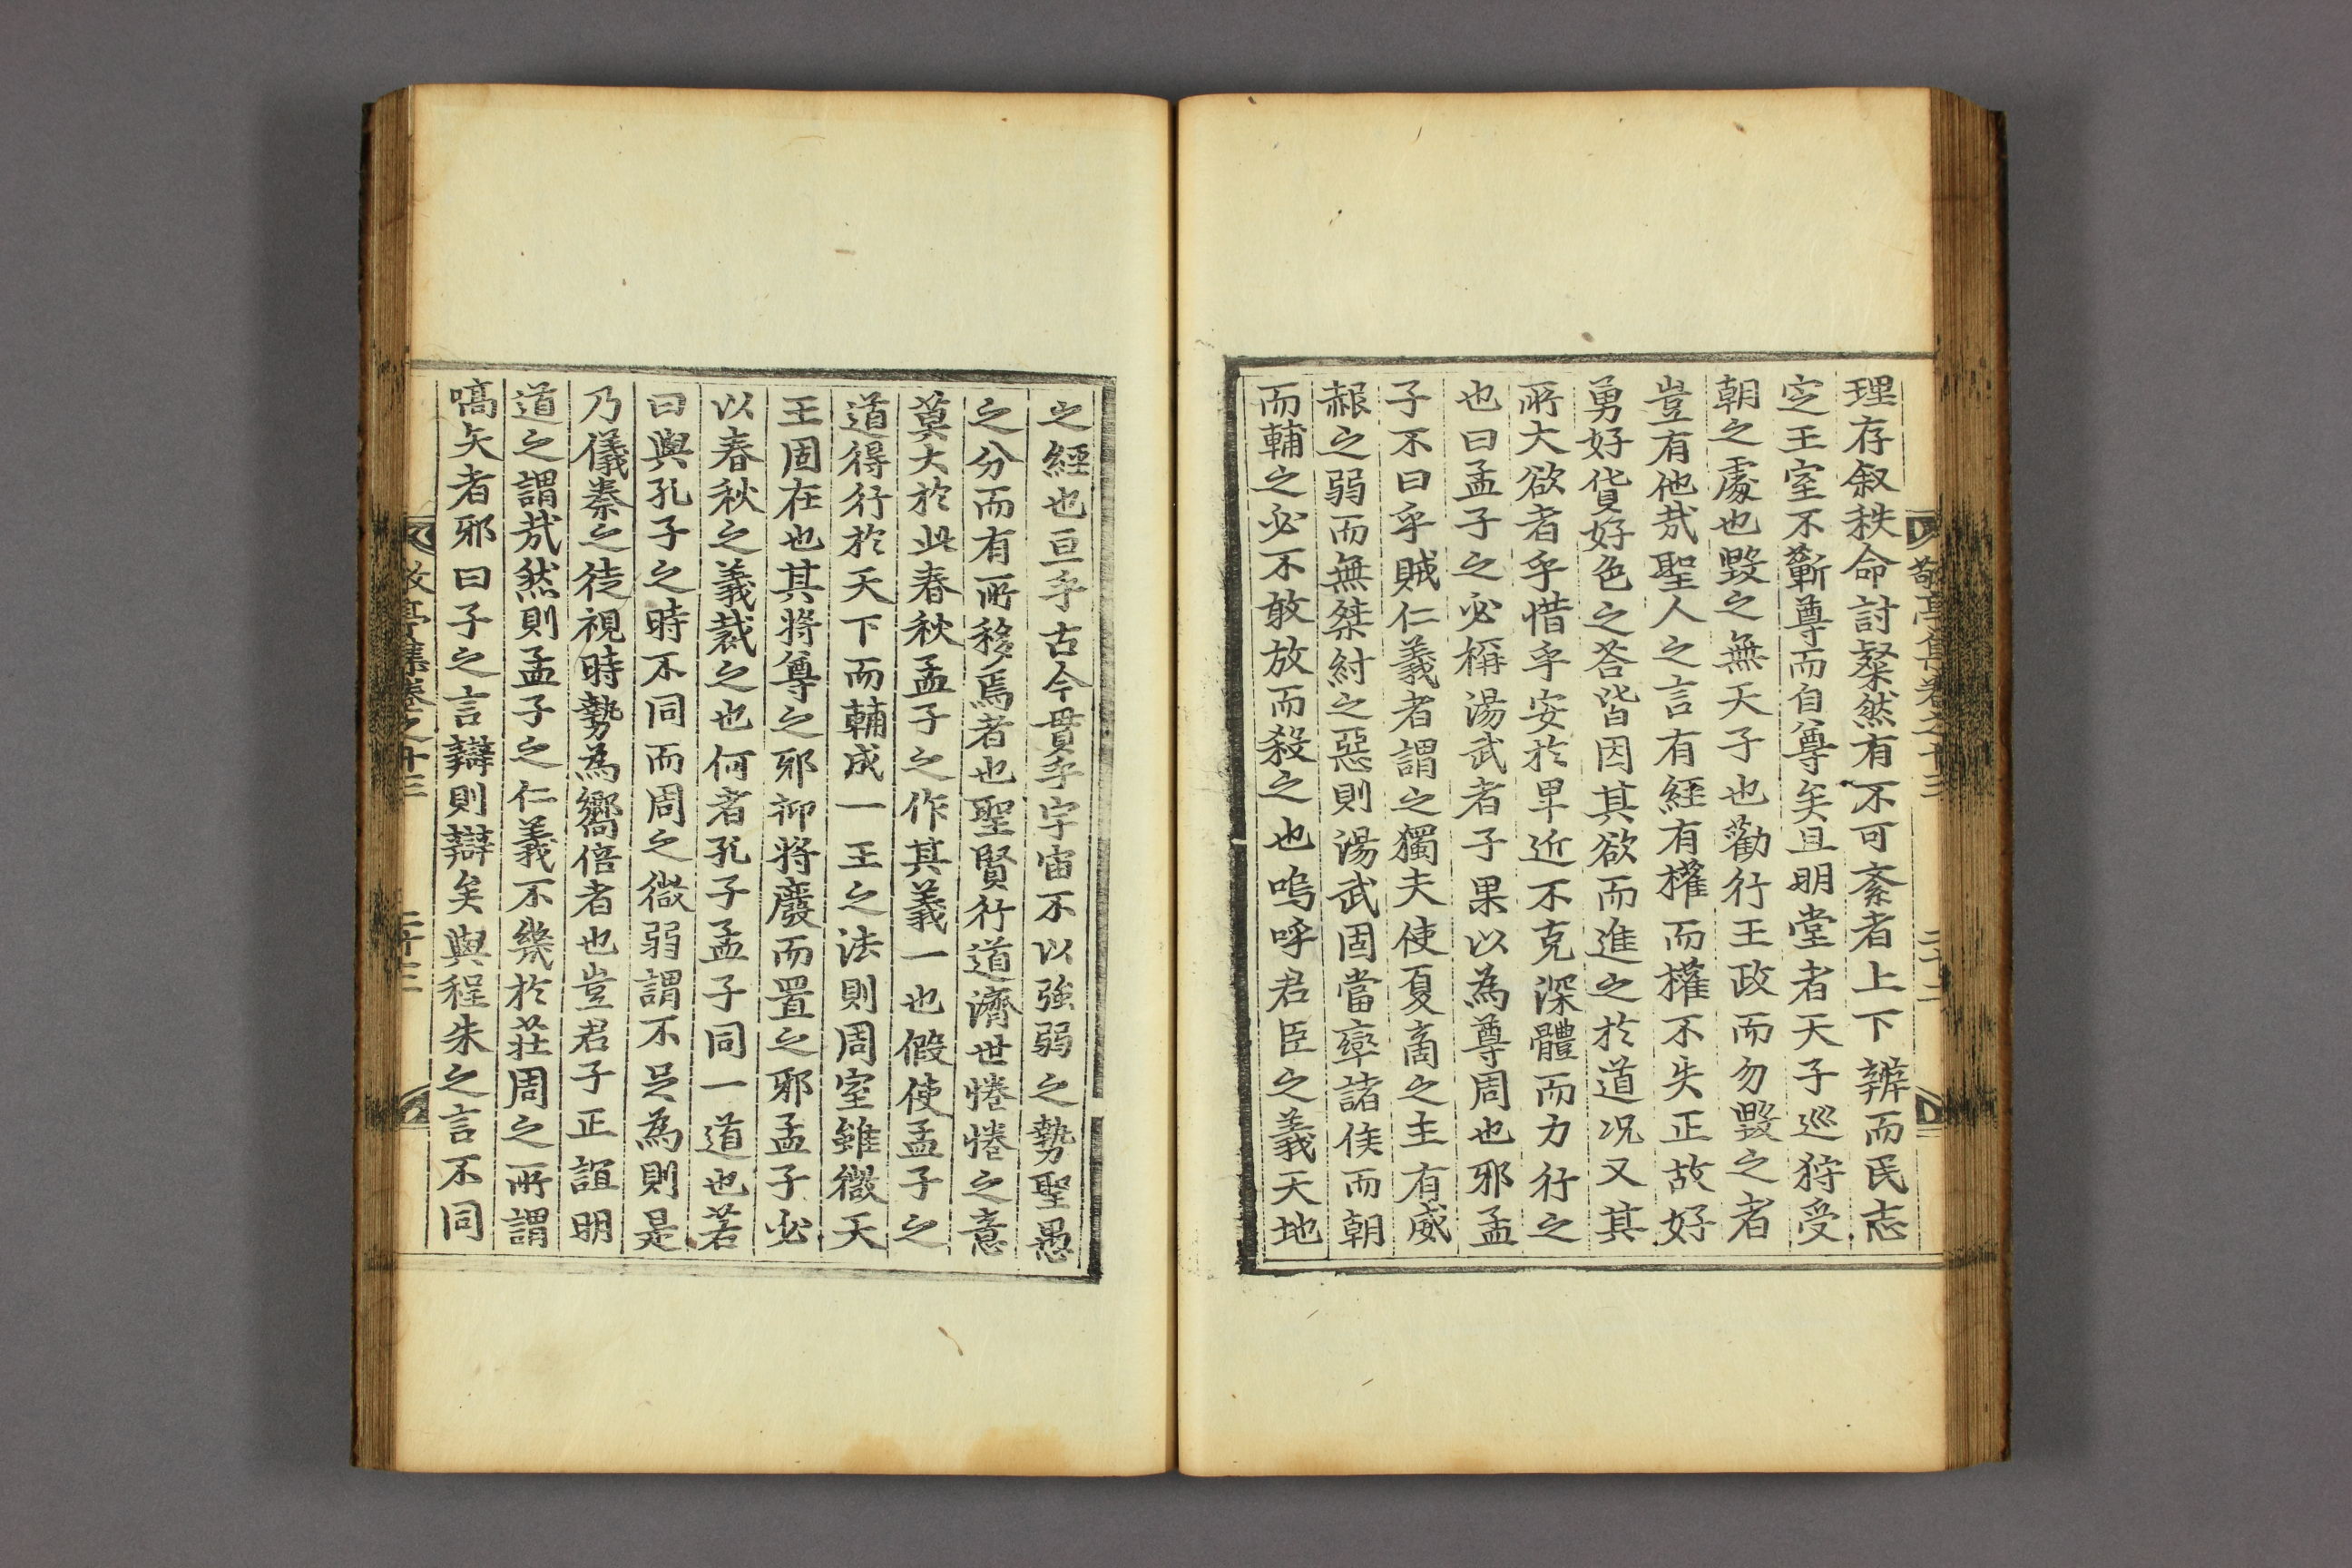 敬亭集卷之十三
二十二
理存叙秩命討粲然有不可紊者上下辨而民志
定王室不蘄尊而自尊矣且明堂者天子巡狩受
朝之處也毀之無天子也勸行王政而勿毀之者
豈有他㢤聖人之言有経有權而權不失正故好
勇好貨好色之荅皆因其欲而進之於道况又其
所大欲者乎惜乎安於卑近不克深體而力行之
也曰孟子之必稱湯武者子果以為尊周也邪孟
子不曰乎賊仁義者謂之獨夫使夏商之主有威
赧之弱而無桀紂之惡則湯武固當率諸侯而朝
而輔之必不敢放而殺之也嗚呼君臣之義天地
之經也亘乎古今貫乎宇宙不以強弱之勢聖愚
之分而有所移焉者也聖賢行道濟世惓惓之意
莫大於此春秋孟子之作其義一也假使孟子之
道得行於天下而輔成一王之法則周室雖微天
王固在也其將尊之邪抑將廢而置之邪孟子必
以春秋之義裁之也何者孔子孟子同一道也若
曰與孔子之時不同而周之微弱謂不足為則是
乃儀秦之徒視時勢為嚮倍者也豈君子正誼明
道之謂㢤然則孟子之仁義不幾於莊周之所謂
嚆矢者邪曰子之言辯則辯矣與程朱之言不同
敬亭集卷之十三
二十三